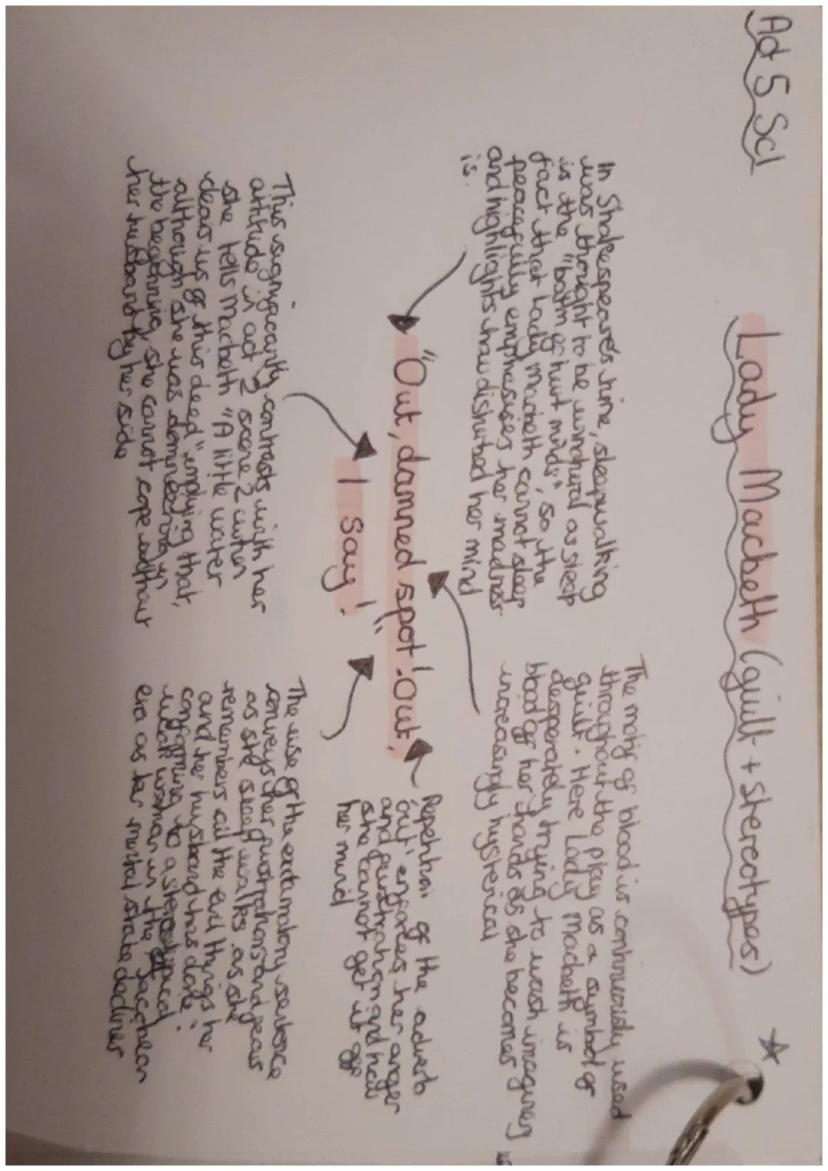 Act 5 Sc1
Lady Macbeth (guilt + stereotypes)
In Shakespeare's time, sleepwalking
was thought to be unnatural as sleep
is the "balm of hurt minds", so the
fact that Lady Macbeth cannot sleep
peacefully emphasises her madness
and highlights how disturbed her mind
is.
The motif of blood is continuously used
throughout the play as a symbol of
guilt. Here Lady Macbeth is
desperately trying to wash imaginary
blood of her hands as she becomes
increasingly hysterical
"Out, damned spot! Out,
I say!"
Repetition of the adverb
'out' enforces her anger
and frustration and how
she cannot get it off
her mind
This significantly contrasts with her
attitude in act 2 scene 2 when
she tells Macbeth "A little water
clears us of this deed" implying that,
although she was domineering in
the beginning, she cannot cope without
her husband by her side
The use of the exclamatory sentence
conveys her frustrations and fears
as she sleep walks as she
remembers all the evil things her
and her husband has done;
conforming to a stereotypical
weak woman in the Jacobean
era as her mental state declines